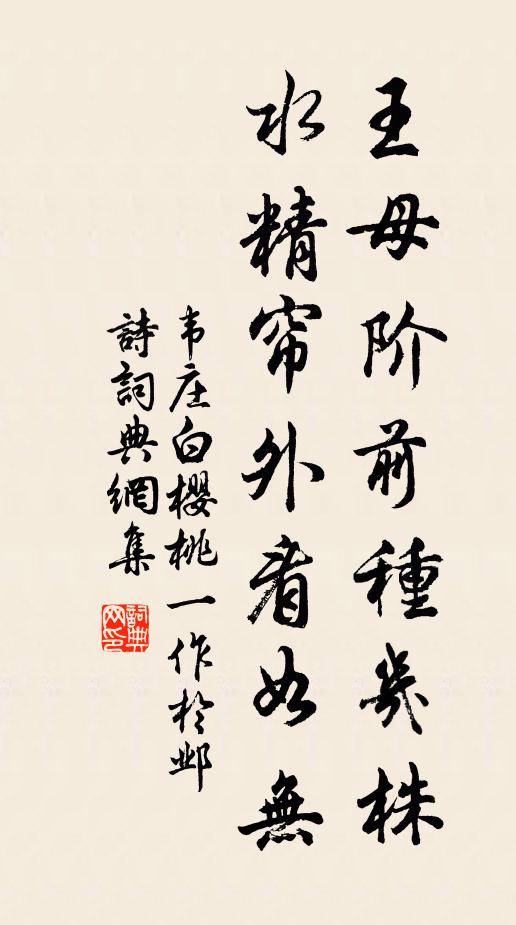 王母阶前種幾株
水精帘外看如無
韦庄白櫻桃一作於邺
詩詞典網集
詞典网印